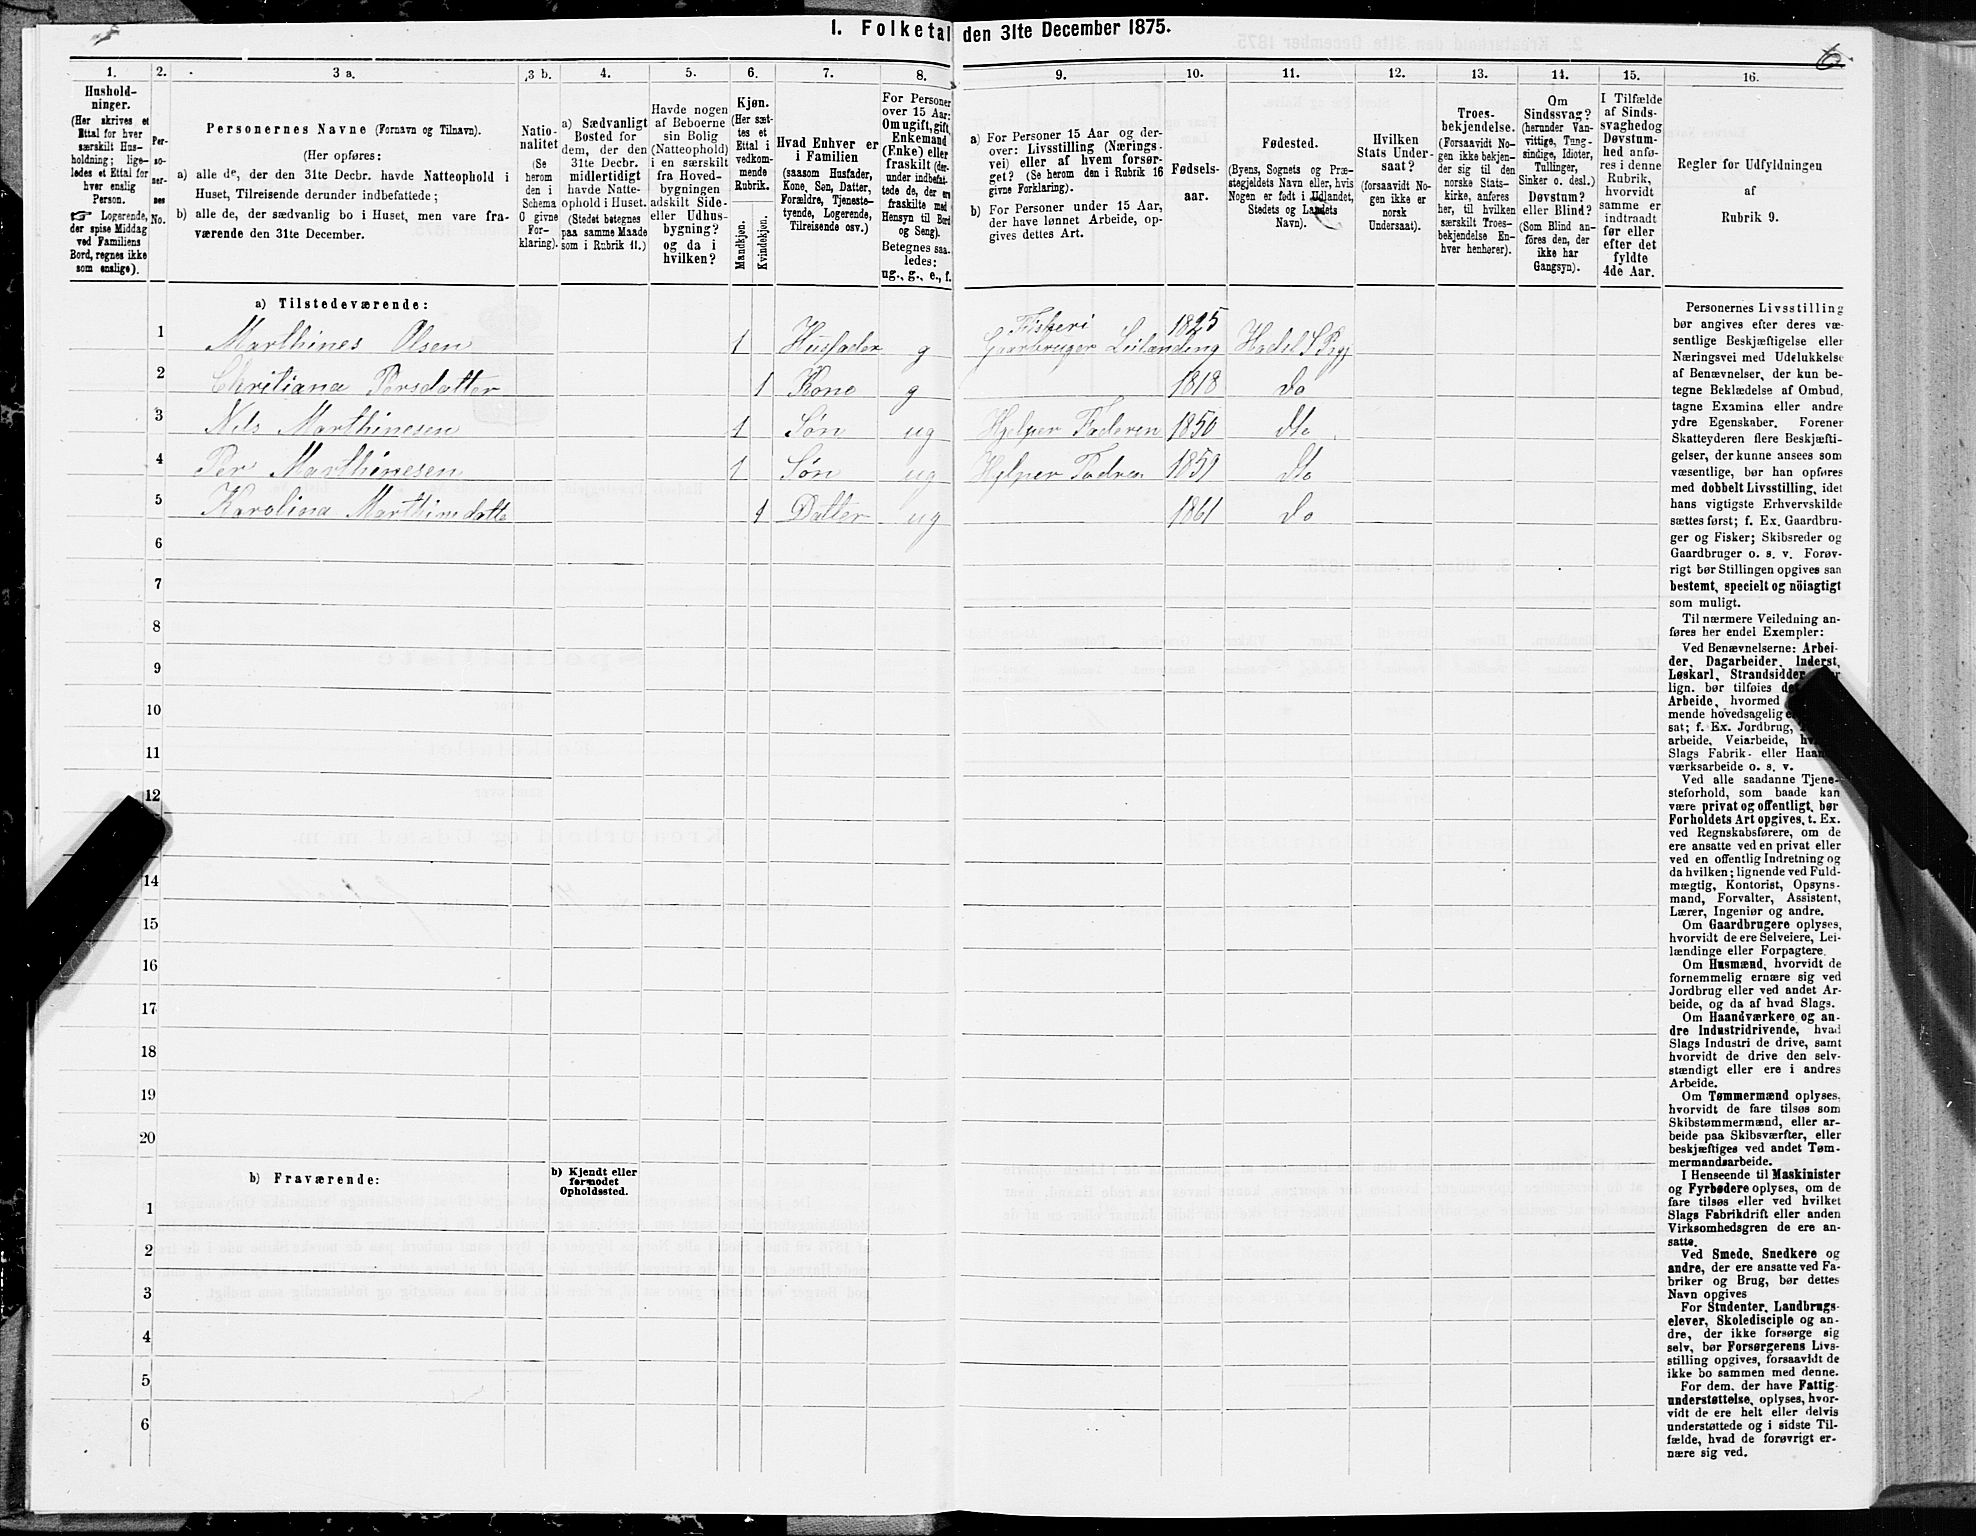 1. Folketal den 31te December 1875.
6
1.
2.
3 a.
3 b.
4.
5.
6.
7.
8.
9.
10.
11.
12.
13.
14.
15.
16.
Hushold-
ninger.
(Her skrives et
Ettal for hver
særskilt Hus-
holdning; lige-
ledes et Ettal for
hver enslig
Person.
☞ Logerende,
der spise Middag
ved Familiens
Bord, regnes ikke
som enslige).
Per-
so-
ner-
nes
No.
Personernes Navne (Fornavn og Tilnavn).
(Her opføres:
a) alle de, der den 31te Decbr. havde Natteophold i
Huset, Tilreisende derunder indbefattede;
b) alle de, der sædvanlig bo i Huset, men vare fra-
værende den 31te December.
Natio-
nalitet
(Se
herom
den i
Schema
O givne
For-
klaring).
a) Sædvanligt
Bosted for
dem, der den
31te Decbr.
midlertidigt
havde Natte-
ophold i Huset.
(Stedet betegnes
paa samme Maade
som i Rubrik 11.)
Havde nogen
af Beboerne
sin Bolig
(Natteophold)
i en særskilt
fra Hoved-
bygningen
adskilt Side-
eller Udhus-
bygning?
og da i
hvilken?
Kjøn.
(Her sæt-
tes et
Ettal i
vedkom-
mende
Rubrik.
Mandkjøn.
Kvindekjøn.
Hvad Enhver er
i Familien
(saasom Husfader,
Kone, Søn, Datter,
Forældre, Tjeneste-
tyende, Logerende,
Tilreisende osv.)
For Personer
over 15 Aar:
Om ugift, gift,
Enkemand
(Enke) eller
fraskilt (der-
under indbefat-
tede de, der ere
fraskilte med
Hensyn til Bord
og Seng).
Betegnes saa-
ledes:
ug., g., e., f.
a) For Personer 15 Aar og der-
over: Livsstilling (Nærings-
vei) eller af hvem forsør-
get? (Se herom den i Rubrik 16
givne Forklaring).
b) For Personer under 15 Aar,
der have lønnet Arbeide, op-
gives dettes Art.
Fødsels-
aar.
Fødested.
(Byens, Sognets og Præ-
stegjeldets Navn eller, hvis
Nogen er født i Udlandet,
Stedets og Landets
Navn).
Hvilken
Stats Under-
saat?
(forsaavidt No-
gen ikke er
norsk
Undersaat).
Troes-
bekjendelse.
(Forsaavidt No-
gen ikke bekjen-
der sig til den
norske Stats-
kirke, anføres
her, til hvilken
særskilt Troes-
bekjendelse En-
hver henhører).
Om
Sindssvag?
(herunder Van-
vittige, Tung-
sindige, Idioter,
Tullinger,
Sinker o. desl.)
Døvstum?
eller Blind?
(Som Blind an-
føres den, der
ikke har
Gangsyn).
I Tilfælde
af Sinds-
svaghed og
Døvstum-
hed anfø-
res i denne
Rubrik,
hvorvidt
samme er
indtraadt
før eller
efter det
fyldte
4de Aar.
Regler for Udfyldningen
af
Rubrik 9.
a) Tilstedeværende:
Fiskeri
1 Marthines Olsen 1 Husfader g Gaarbruger Leilænding 1825 Hadsel S Pgj
2 Christiana Persdatter 1 Kone g 1818 do
3 Nils Marthinesen 1 Søn ug Hjelper Faderen 1850 dto
4 Per Marthinesen 1 Søn ug Hjelper Fadren 1859 dto
5 Karolina Marthinsdatte 1 Datter ug 1861 do
6
7
8
9
10
11
12
14
15
16
17
18
19
20
b) Fraværende:
b) Kjendt eller
formodet
Opholdssted.
1
2
3
4
5
6
Personernes Livsstilling
bør angives efter deres væ-
sentlige Beskjæftigelse eller
Næringsvei med Udelukkelse
af Benævnelser, der kun be-
tegne Beklædelse af Ombud,
tagne Examina eller andre
ydre Egenskaber. Forener
Skatteyderen flere Beskjæfti-
gelser, der kunne ansees som
væsentlige, bør han opføres
med dobbelt Livsstilling, idet
hans vigtigste Erhvervskilde
sættes først; f. Ex. Gaardbru-
ger og Fisker; Skibsreder og
Gaardbruger o. s. v. Forøv-
rigt bør Stillingen opgives saa
bestemt, specielt og nöiagtigt
som muligt.
Til nærmere Veiledning an-
føres her endel Exempler:
Ved Benævnelserne: Arbei-
der, Dagarbeider, Inderst,
Løskarl, Strandsidder
lign. bør tilføies
Arbeide, hvormed
mende hovedsagelig
sat; f. Ex. Jordbrug,
arbeide, Veiarbeide,
Slags Fabrik- eller
værksarbeide o. s. v.
Ved alle saadanne Tjene-
steforhold, som baade kan
være privat og offentligt, bør
Forholdets Art opgives, t. Ex.
ved Regnskabsførere, om de
ere ansatte ved en privat eller
ved en offentlig Indretning og
da hvilken; lignende ved Fuld-
mægtig, Kontorist, Opsyns-
mand, Forvalter, Assistent,
Lærer, Ingeniør og andre.
Om Gaardbrugere oplyses,
hvorvidt de ere Selveiere, Lei-
lændinge eller Forpagtere.
Om Husmænd, hvorvidt de
fornemmelig ernære sig ved
Jordbrug eller ved andet Ar-
beide, og da af hvad Slags.
Om Haandværkere og an-
dre Industridrivende, hvad
Slags Industri de drive, samt
hvorvidt de drive den selv-
stændigt eller ere i andres
Arbeide.
Om Tømmermænd oplyses,
hvorvidt de fare tilsøs som
Skibstømmermænd, eller ar-
beide paa Skibsværfter, eller
beskjæftiges ved andet Tøm-
mermandsarbeide.
I Henseende til Maskinister
og Fyrbødere oplyses, om de
fare tilsøs eller ved hvilket
Slags Fabrikdrift eller anden
Virksomhedsgren de ere an-
satte.
Ved Smede, Snedkere og
andre, der ere ansatte ved Fa-
briker og Brug, bør dettes
Navn opgives
For Studenter, Landbrugs-
elever, Skoledisciple og an-
dre, der ikke forsørge sig
selv, bør Forsørgerens Livs-
stilling opgives, forsaavidt de
ikke bo sammen med denne.
For dem, der have Fattig-
understøttelse, oplyses, hvor-
vidt de ere helt eller delvis
understøttede og i sidste Til-
fælde, hvad de forøvrigt er-
nære sig ved.